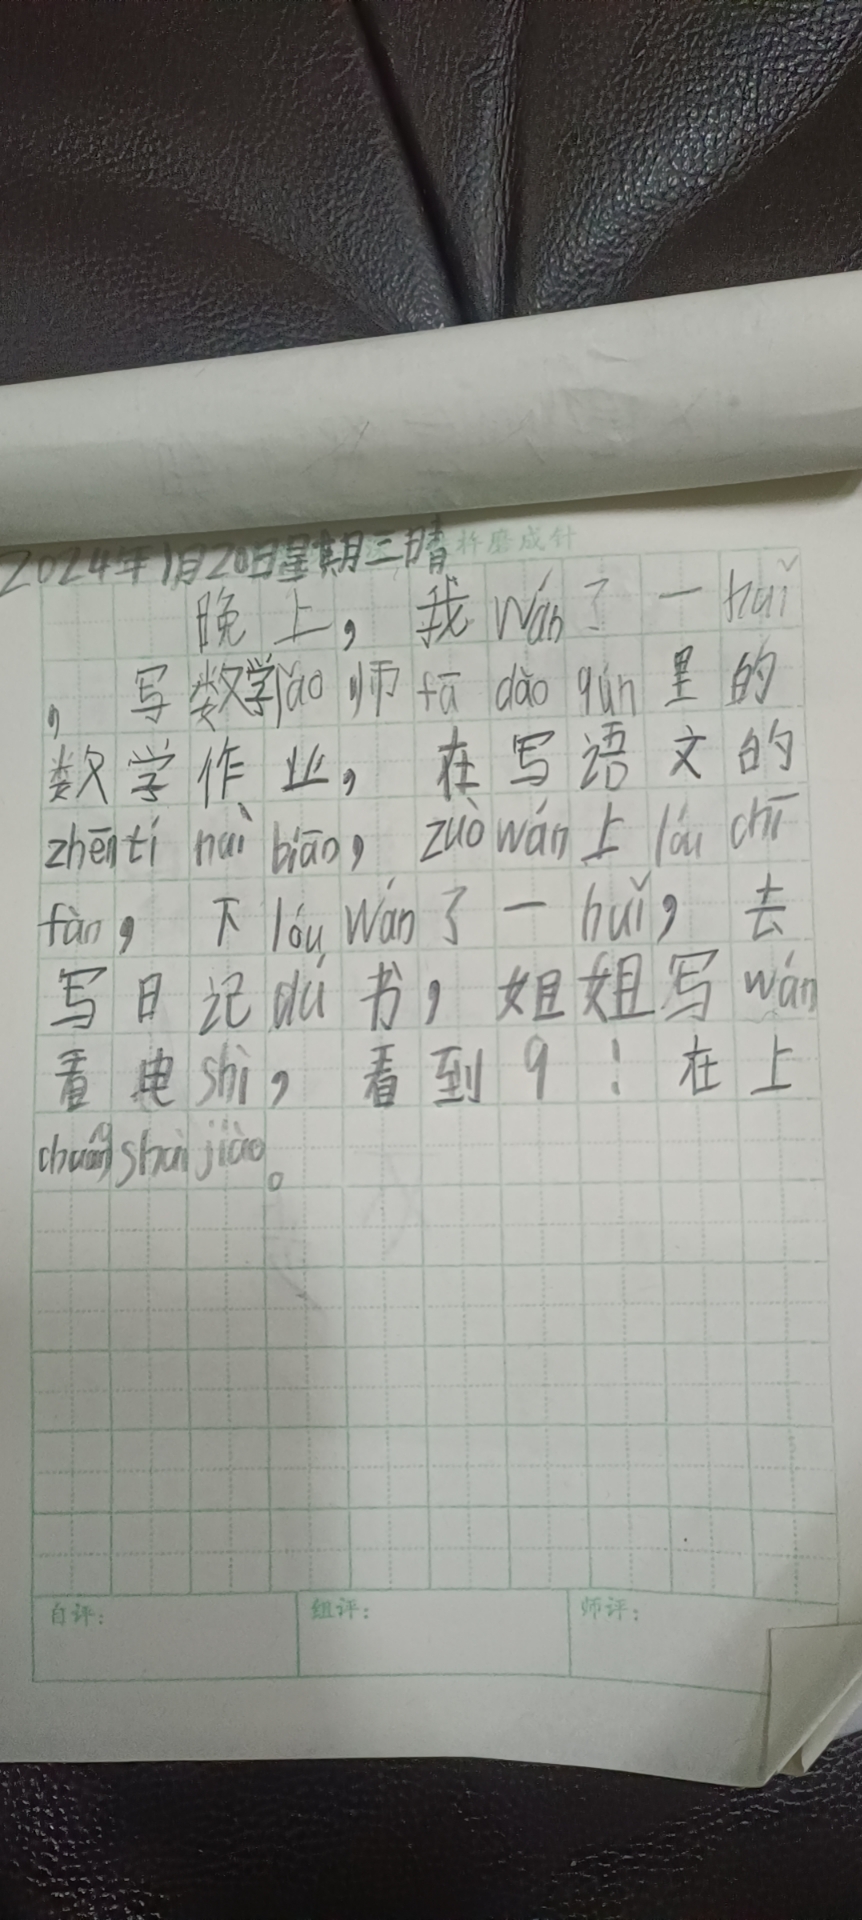 杵磨成针
2024年1月20日星期三晴
晚上，我wán了一huǐ
，写数学lǎo师fā dào qún里的
数学作业，在写语文的
zhēn tí nuì biāo，zuò wán上lóu chī
fàn，下lóu wán了一huǐ，去
写日记dú书，姐姐写wán
看电shì，看到9！在上
chuáng shuì jiào。
自评： 组评： 师评：